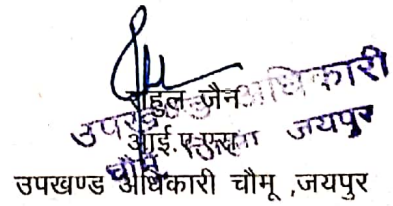 राहुल जैन
आई.ए.एस
उपखण्ड अधिकारी चौमू ,जयपुर
उपखण्ड अधिकारी
चौमू जयपुर